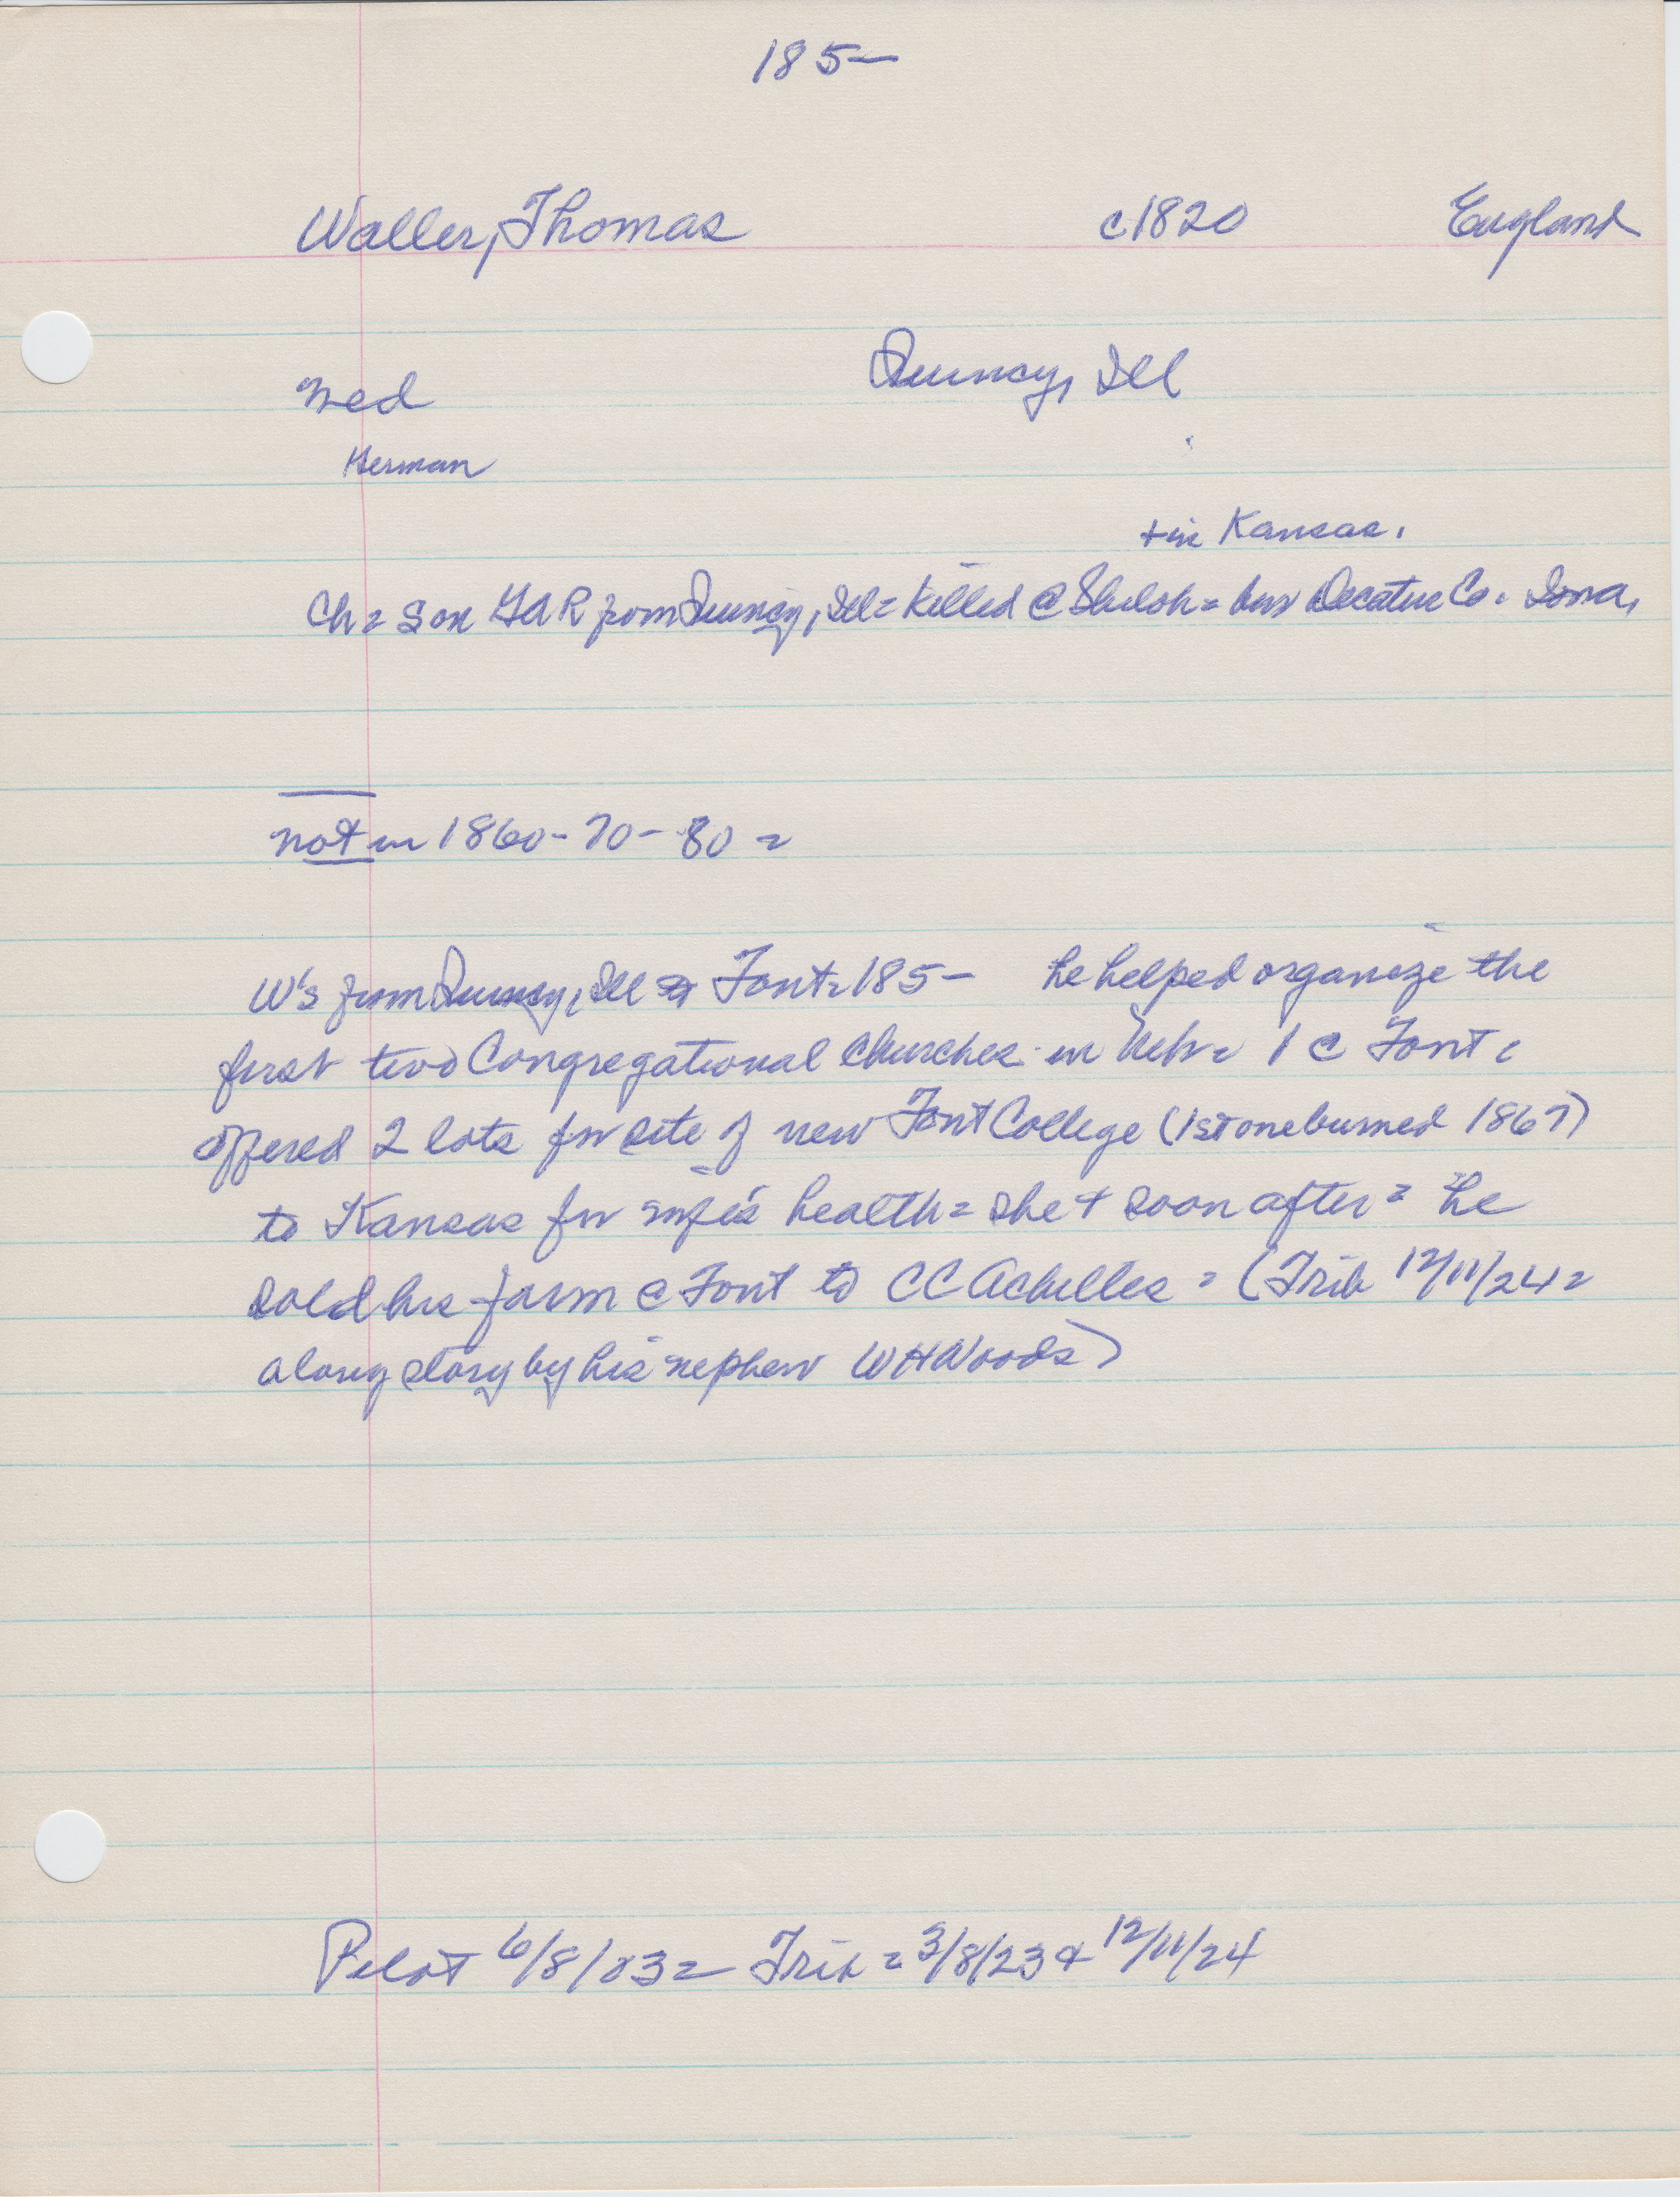 185-
Waller, Thomas c1820 England
med Quincy, Ill
Herman
+ in Kansas.
Ch = son GAR from Quincy, Ill = killed @ Shiloh = bur Decatur Co. Iowa.
not in 1860-70-80 =
W's from Quincy, Ill Font = 185- he helped organize the
first two Congregational Churches in Neb = 1 @ Font =
offered 2 lots for site of new Font College (1st one burned 1867)
to Kansas for wife's health = she + soon after = he
sold his farm @ Font to CC Achilles = (Trib 12/11/24 =
a long story by his nephew WH Woods)
Pilot 6/8/83 = Trib = 3/8/23 & 12/11/24